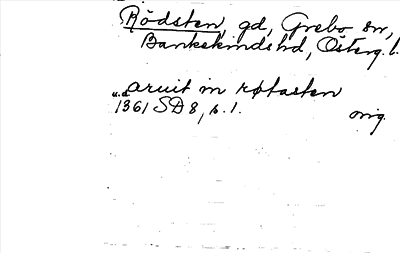 Rödsten gd, Grebo sn,
Bankekinds hd, Österg. l.
"..aruit in røtasten
1361 SD 8, s. 1. orig.